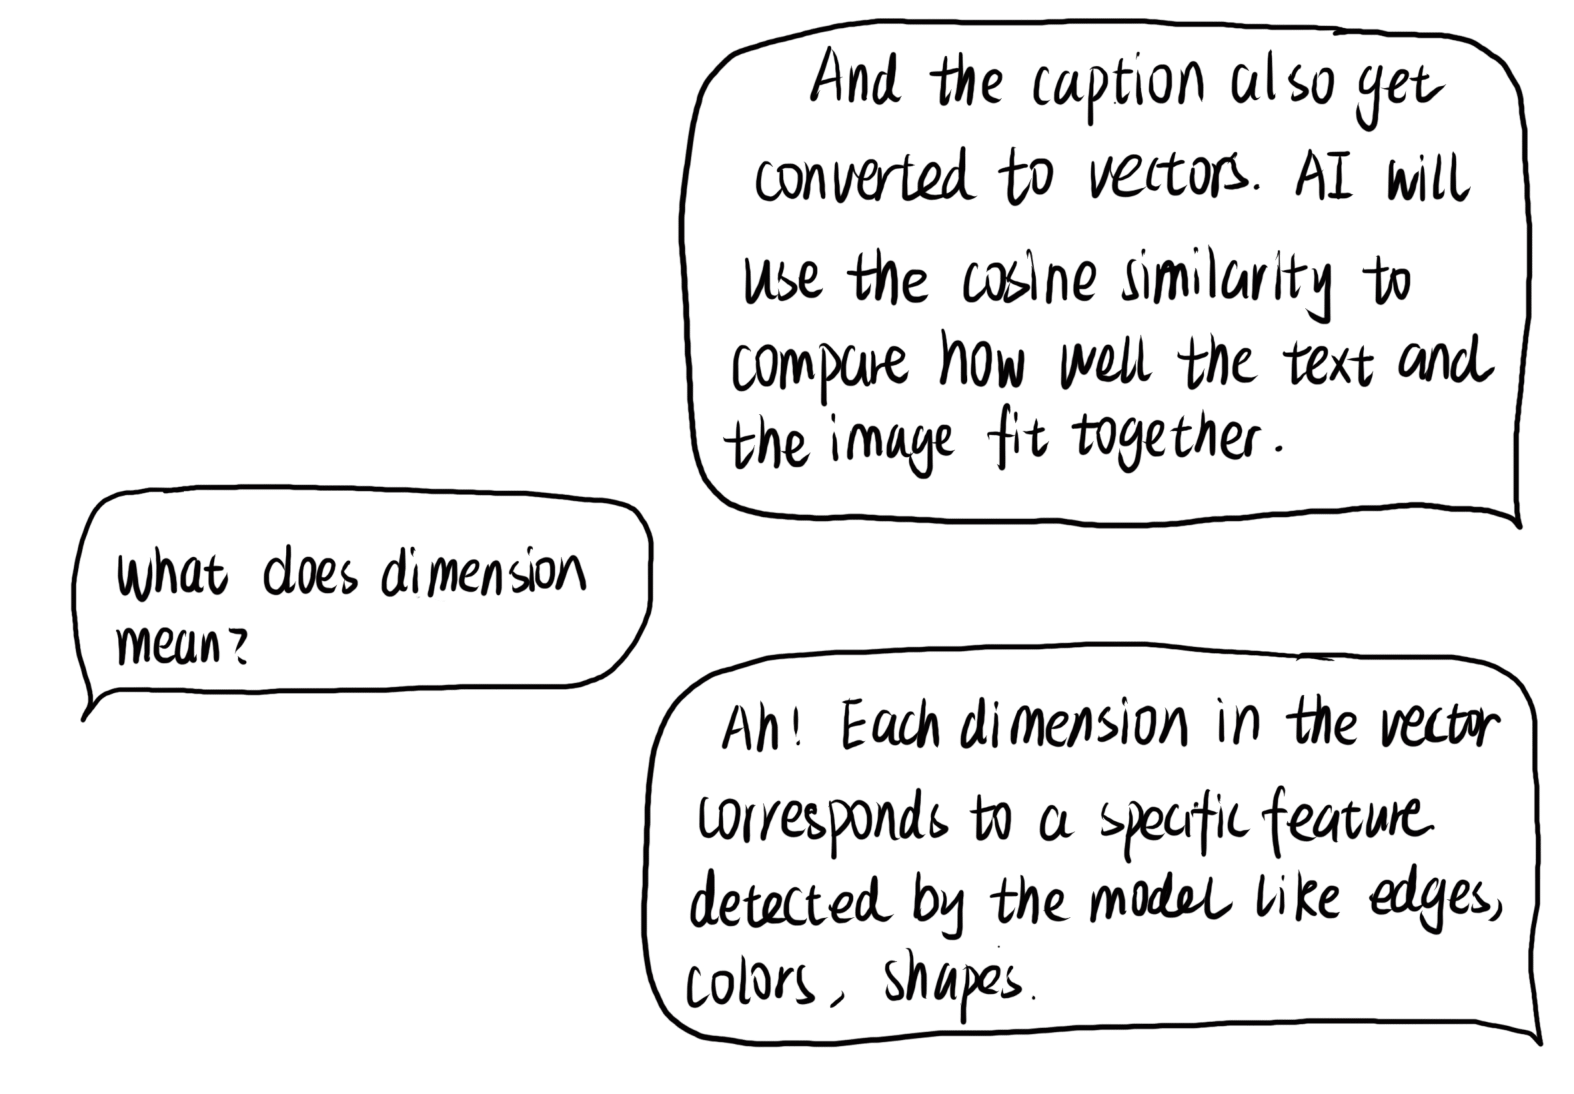 And the caption also get
converted to vectors. AI will
use the cosine similarity to
compare how well the text and
the image fit together.
What does dimension
mean?
Ah! Each dimension in the vector
corresponds to a specific feature
detected by the model like edges,
colors, shapes.